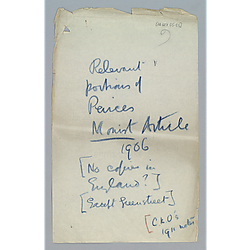 Relevant
portions of
Peirces
Monist Article
1906
[No copies in
England?]
[Except Greenstreet]
[CKO's
1911 notes